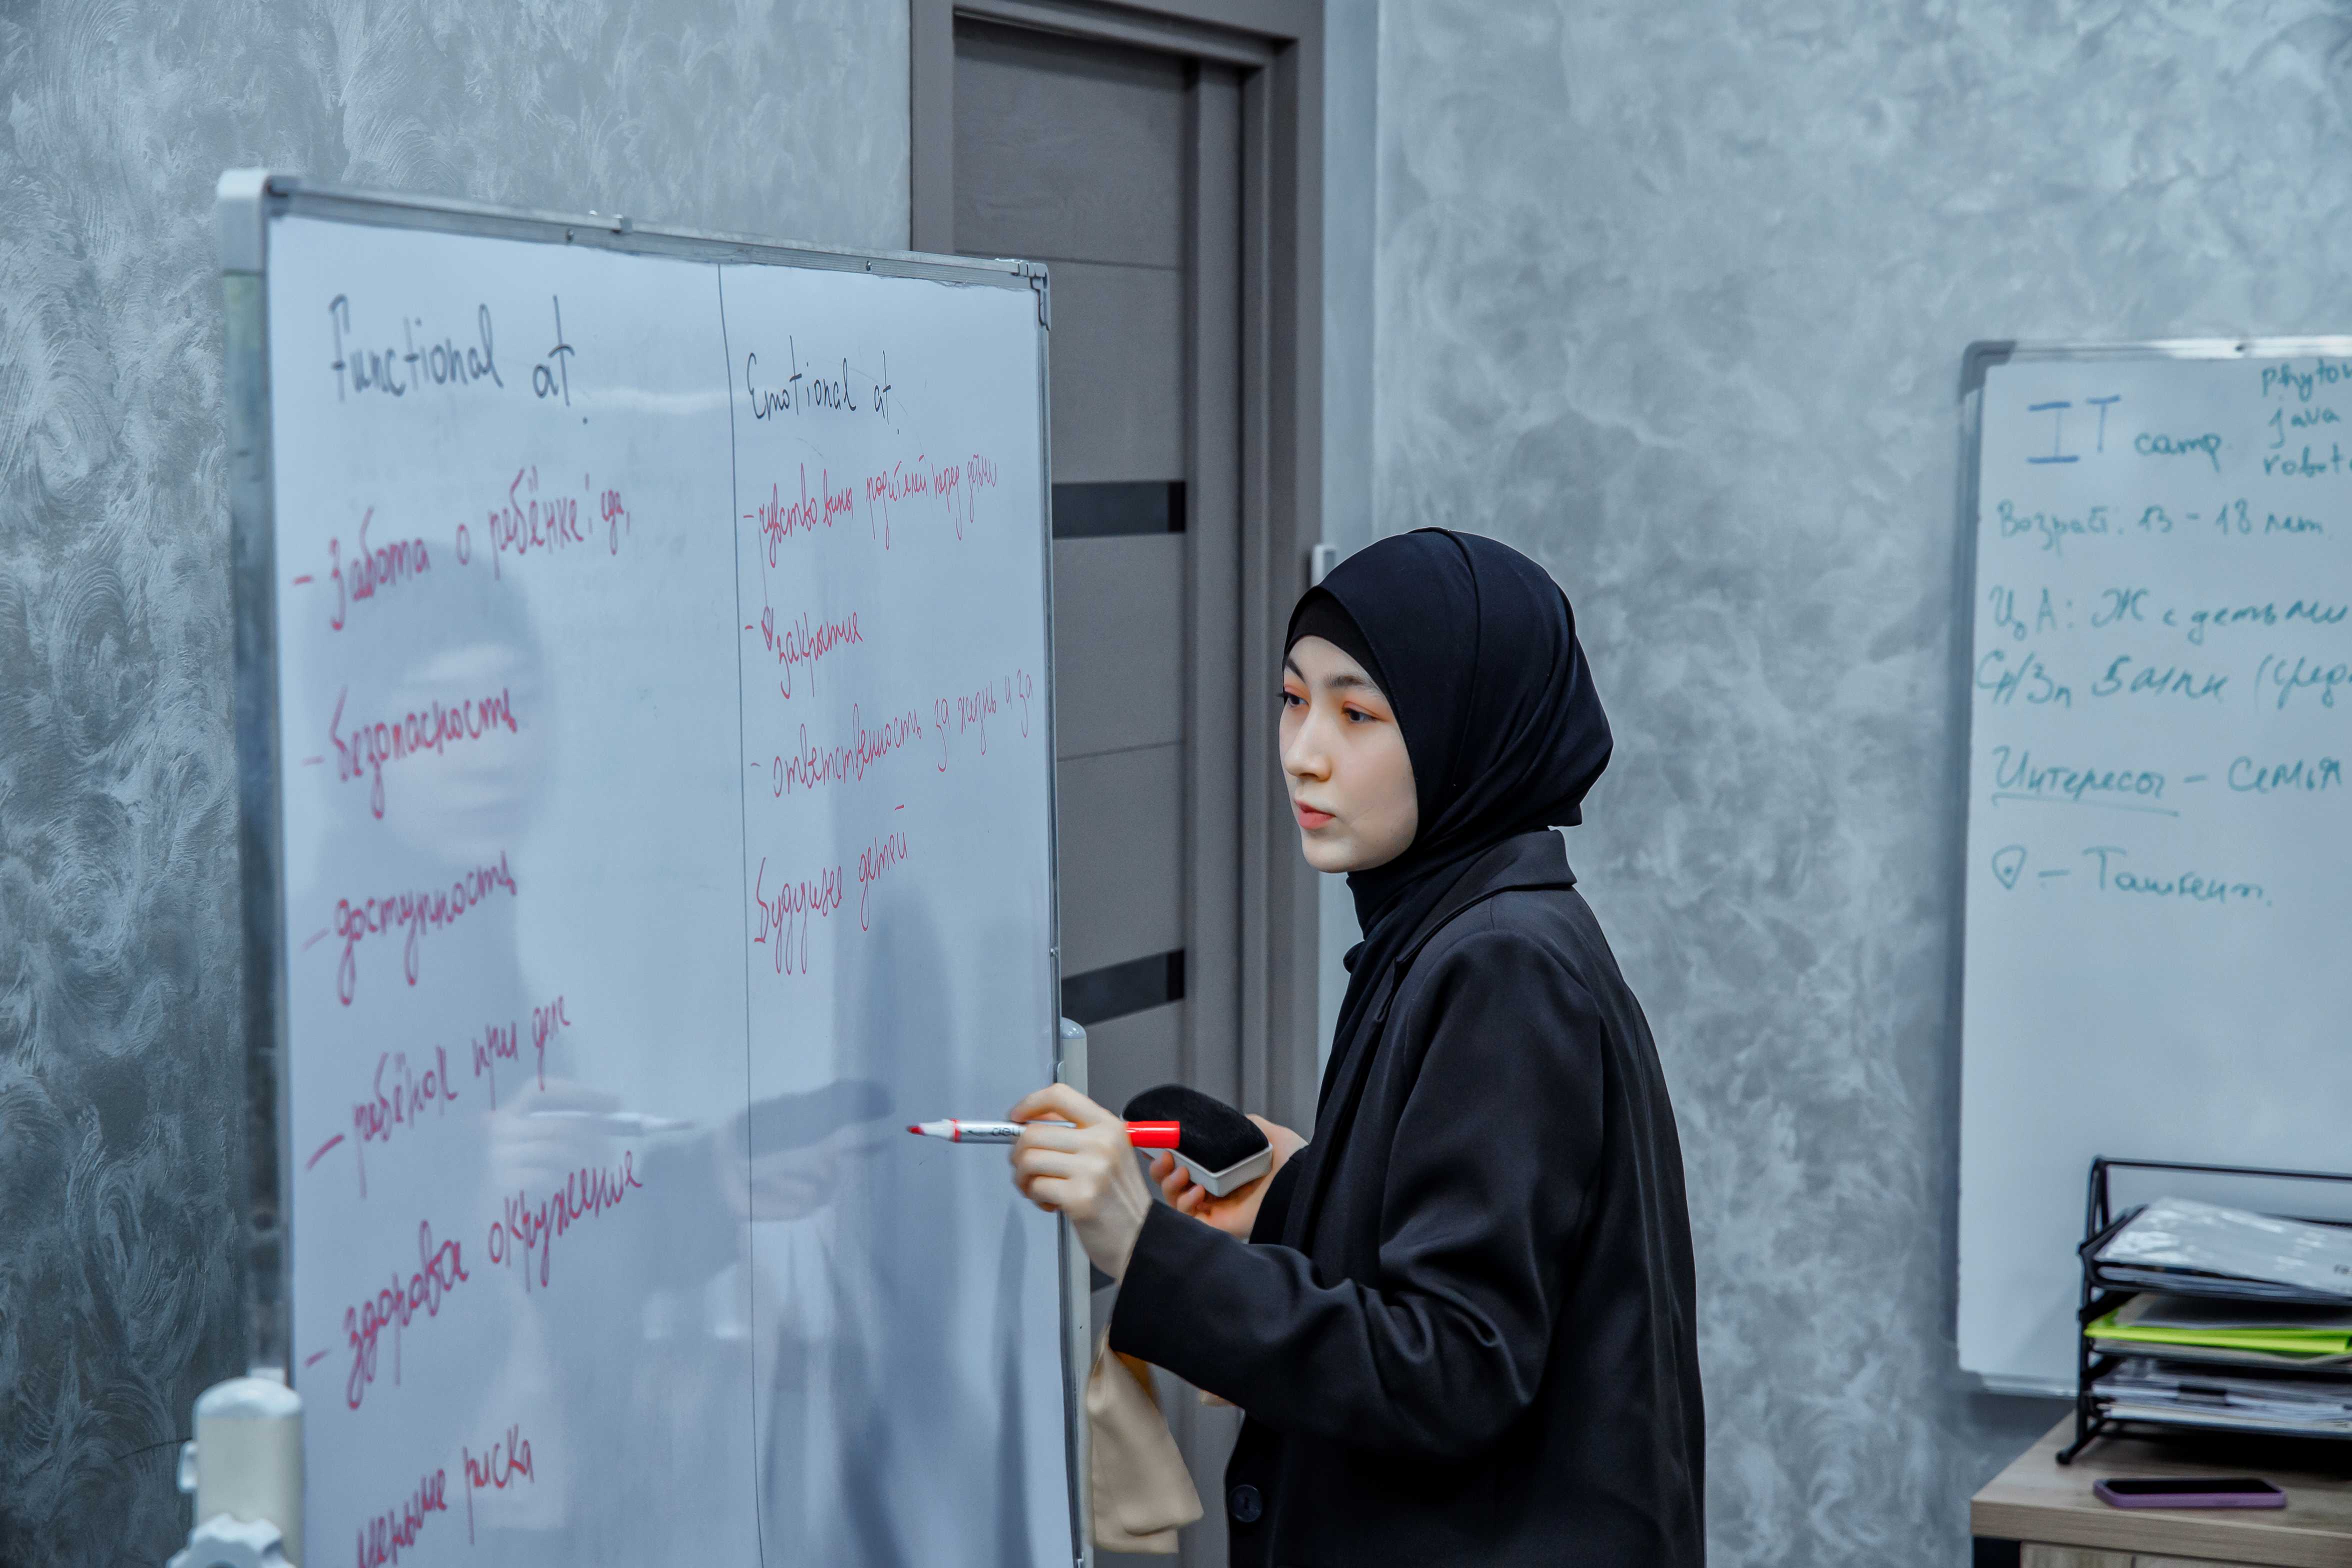 Functional at.
- забота о ребёнке: еда,
- безопасность
- доступность
- ребёнок при деле
- здоровое окружение
меньше риска
Emotional at.
- чувство вины родителей перед детьми
- закрытие
- ответственность за жизнь и за
будущее детей
deli
IT camp
phyton
java
robot
Возраст: 13 - 18 лет
ЦА: Ж с детьми
(сред
Интересы - семья
- Ташкент.